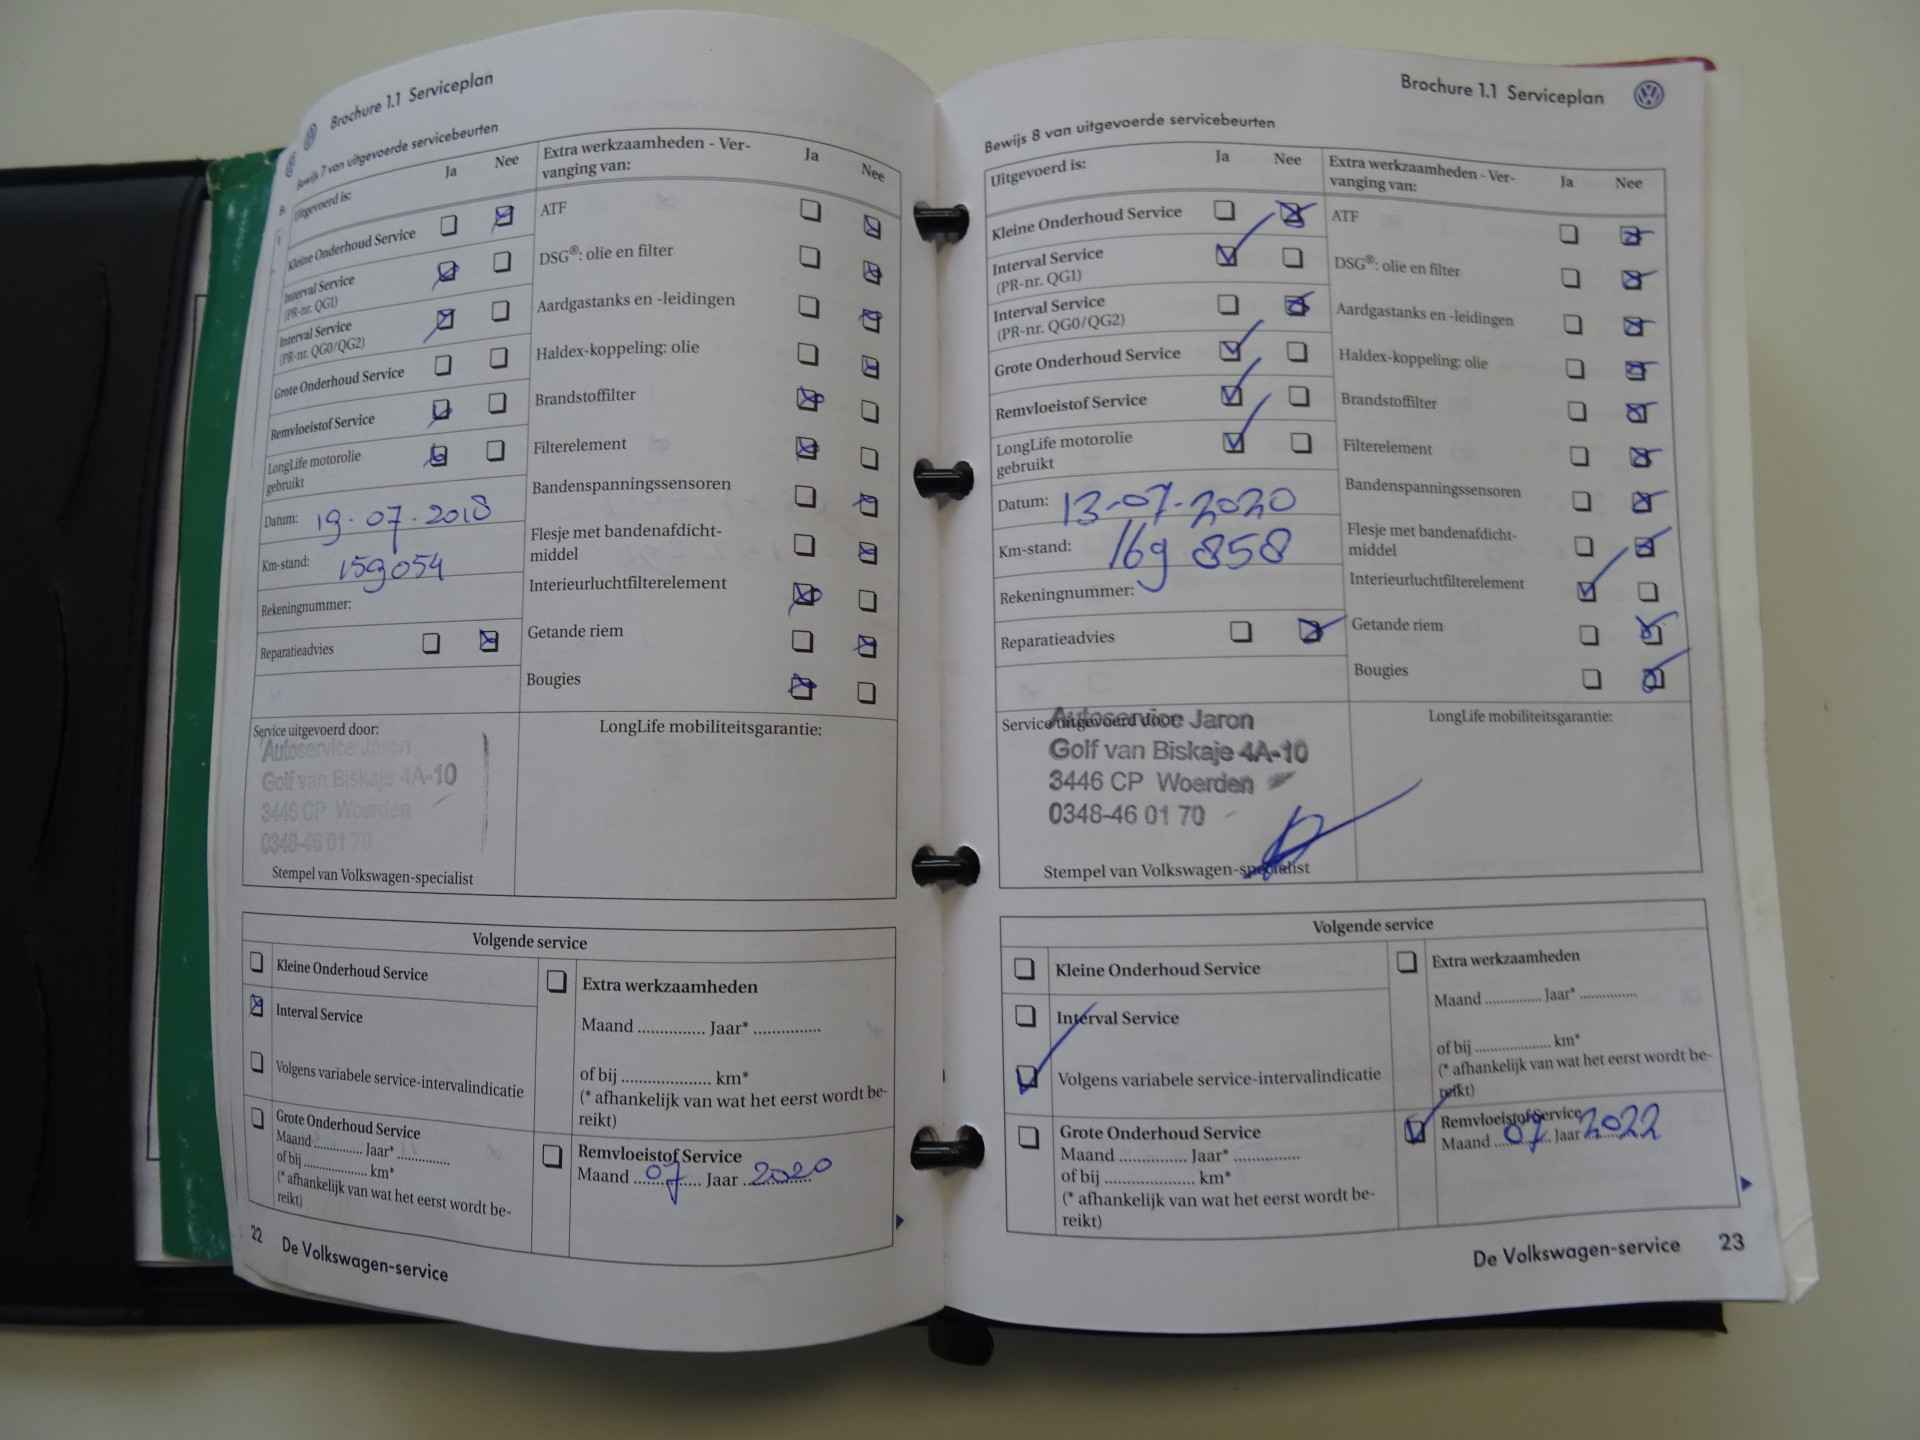 Brochure 1.1 Serviceplan
Bewijs 7 van uitgevoerde servicebeurten
Uitgevoerd is:
Ja
Nee
Kleine Onderhoud Service
Interval Service
(PR-nr. QG1)
Interval Service
(PR-nr. QG0/QG2)
Grote Onderhoud Service
Remvloeistof Service
LongLife motorolie
gebruikt
Datum: 19-07-2018
Km-stand: 159054
Rekeningnummer:
Reparatieadvies
Extra werkzaamheden - Ver-
vanging van:
Ja
Nee
ATF
DSG®: olie en filter
Aardgastanks en -leidingen
Haldex-koppeling: olie
Brandstoffilter
Filterelement
Bandenspanningssensoren
Flesje met bandenafdicht-
middel
Interieurluchtfilterelement
Getande riem
Bougies
Service uitgevoerd door:
Autoservice Jaron
Golf van Biskaje 4A-10
3446 CP Woerden
0348-46 01 70
Stempel van Volkswagen-specialist
LongLife mobiliteitsgarantie:
Volgende service
Kleine Onderhoud Service
Interval Service
Volgens variabele service-intervalindicatie
Grote Onderhoud Service
Maand ............ Jaar* .............
of bij ................ km*
(* afhankelijk van wat het eerst wordt be-
reikt)
Extra werkzaamheden
Maand ............... Jaar* ...............
of bij .................... km*
(* afhankelijk van wat het eerst wordt be-
reikt)
Remvloeistof Service
Maand 07 Jaar 2020
22 De Volkswagen-service
Brochure 1.1 Serviceplan
Bewijs 8 van uitgevoerde servicebeurten
Uitgevoerd is:
Ja
Nee
Kleine Onderhoud Service
Interval Service
(PR-nr. QG1)
Interval Service
(PR-nr. QG0/QG2)
Grote Onderhoud Service
Remvloeistof Service
LongLife motorolie
gebruikt
Datum: 13-07-2020
Km-stand: 169 858
Rekeningnummer:
Reparatieadvies
Extra werkzaamheden - Ver-
vanging van:
Ja
Nee
ATF
DSG®: olie en filter
Aardgastanks en -leidingen
Haldex-koppeling: olie
Brandstoffilter
Filterelement
Bandenspanningssensoren
Flesje met bandenafdicht-
middel
Interieurluchtfilterelement
Getande riem
Bougies
Service uitgevoerd door:
Autoservice Jaron
Golf van Biskaje 4A-10
3446 CP Woerden
0348-46 01 70
Stempel van Volkswagen-specialist
LongLife mobiliteitsgarantie:
Volgende service
Kleine Onderhoud Service
Interval Service
Volgens variabele service-intervalindicatie
Grote Onderhoud Service
Maand ............... Jaar* ...............
of bij .................... km*
(* afhankelijk van wat het eerst wordt be-
reikt)
Extra werkzaamheden
Maand ............... Jaar* ...............
of bij .................... km*
(* afhankelijk van wat het eerst wordt be-
reikt)
Remvloeistof Service
Maand 07 Jaar 2022
De Volkswagen-service 23